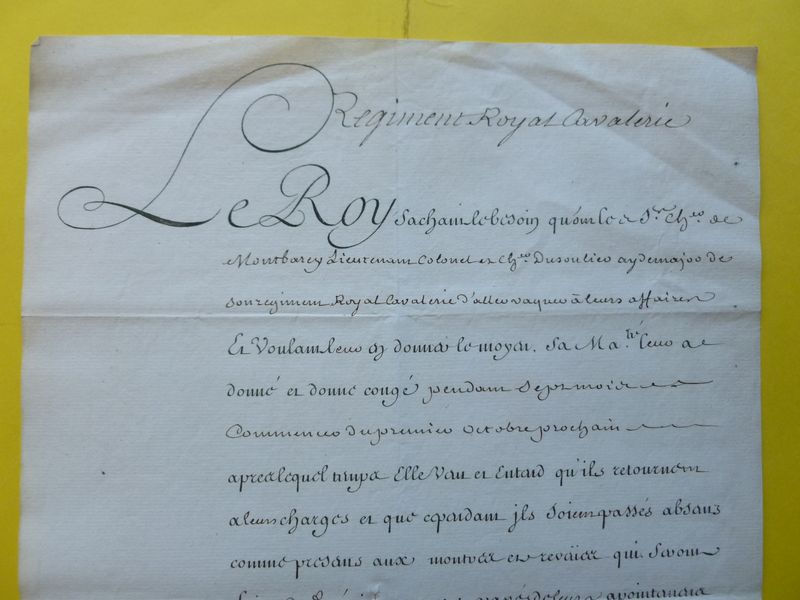 Regiment Royal Cavalerie
Le Roy Sachant le besoin qu'ont le s S.rs Ch.er de
Montbarey Lieutenant Colonel et Ch.er Dusoulier aydemajor de
son regiment Royal Cavalerie d'aller vaquer à leurs affaires
Et Voulant leur en donner le moyen. Sa Ma.té leur a
donné et donne congé pendant Sept mois
Commencer du premier Octobre prochain
apres lequel temps Elle Veut et Entend qu'ils retournent
a leurs charges et que cependant jls Soient passés absans
comme presens aux montres et reveües qui Seront
de leurs apointemens